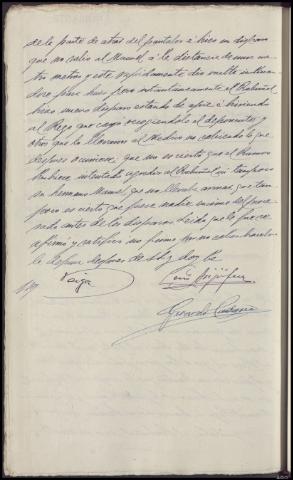 de la parte de atras del pantalon e hizo un disparo
que no calzo al Manuel á la distancia de unos cua-
tro metros y este rapidamente dio vuelta intentan-
do huir pero instantaneamente el Rabiñal
hizo nuevo disparo estando de espie é hiriendo
al Rego que cayó recogiendolo el deponente y
otro que lo llevaron al Medico no sabiendo lo que
despues ocurriera; que no es cierto que el Ramon
hubiera intentado agredir al Rabiñal ni tampoco
su hermano Manuel que no llevaba armas, que tam-
poco es cierto que fuera nadie encima del proce-
sado antes de los disparos. Leido que le fue se
afirmó y ratifica no firma por no saber hacerlo
lo despues de S.S.ª y doy fe
Gerardo